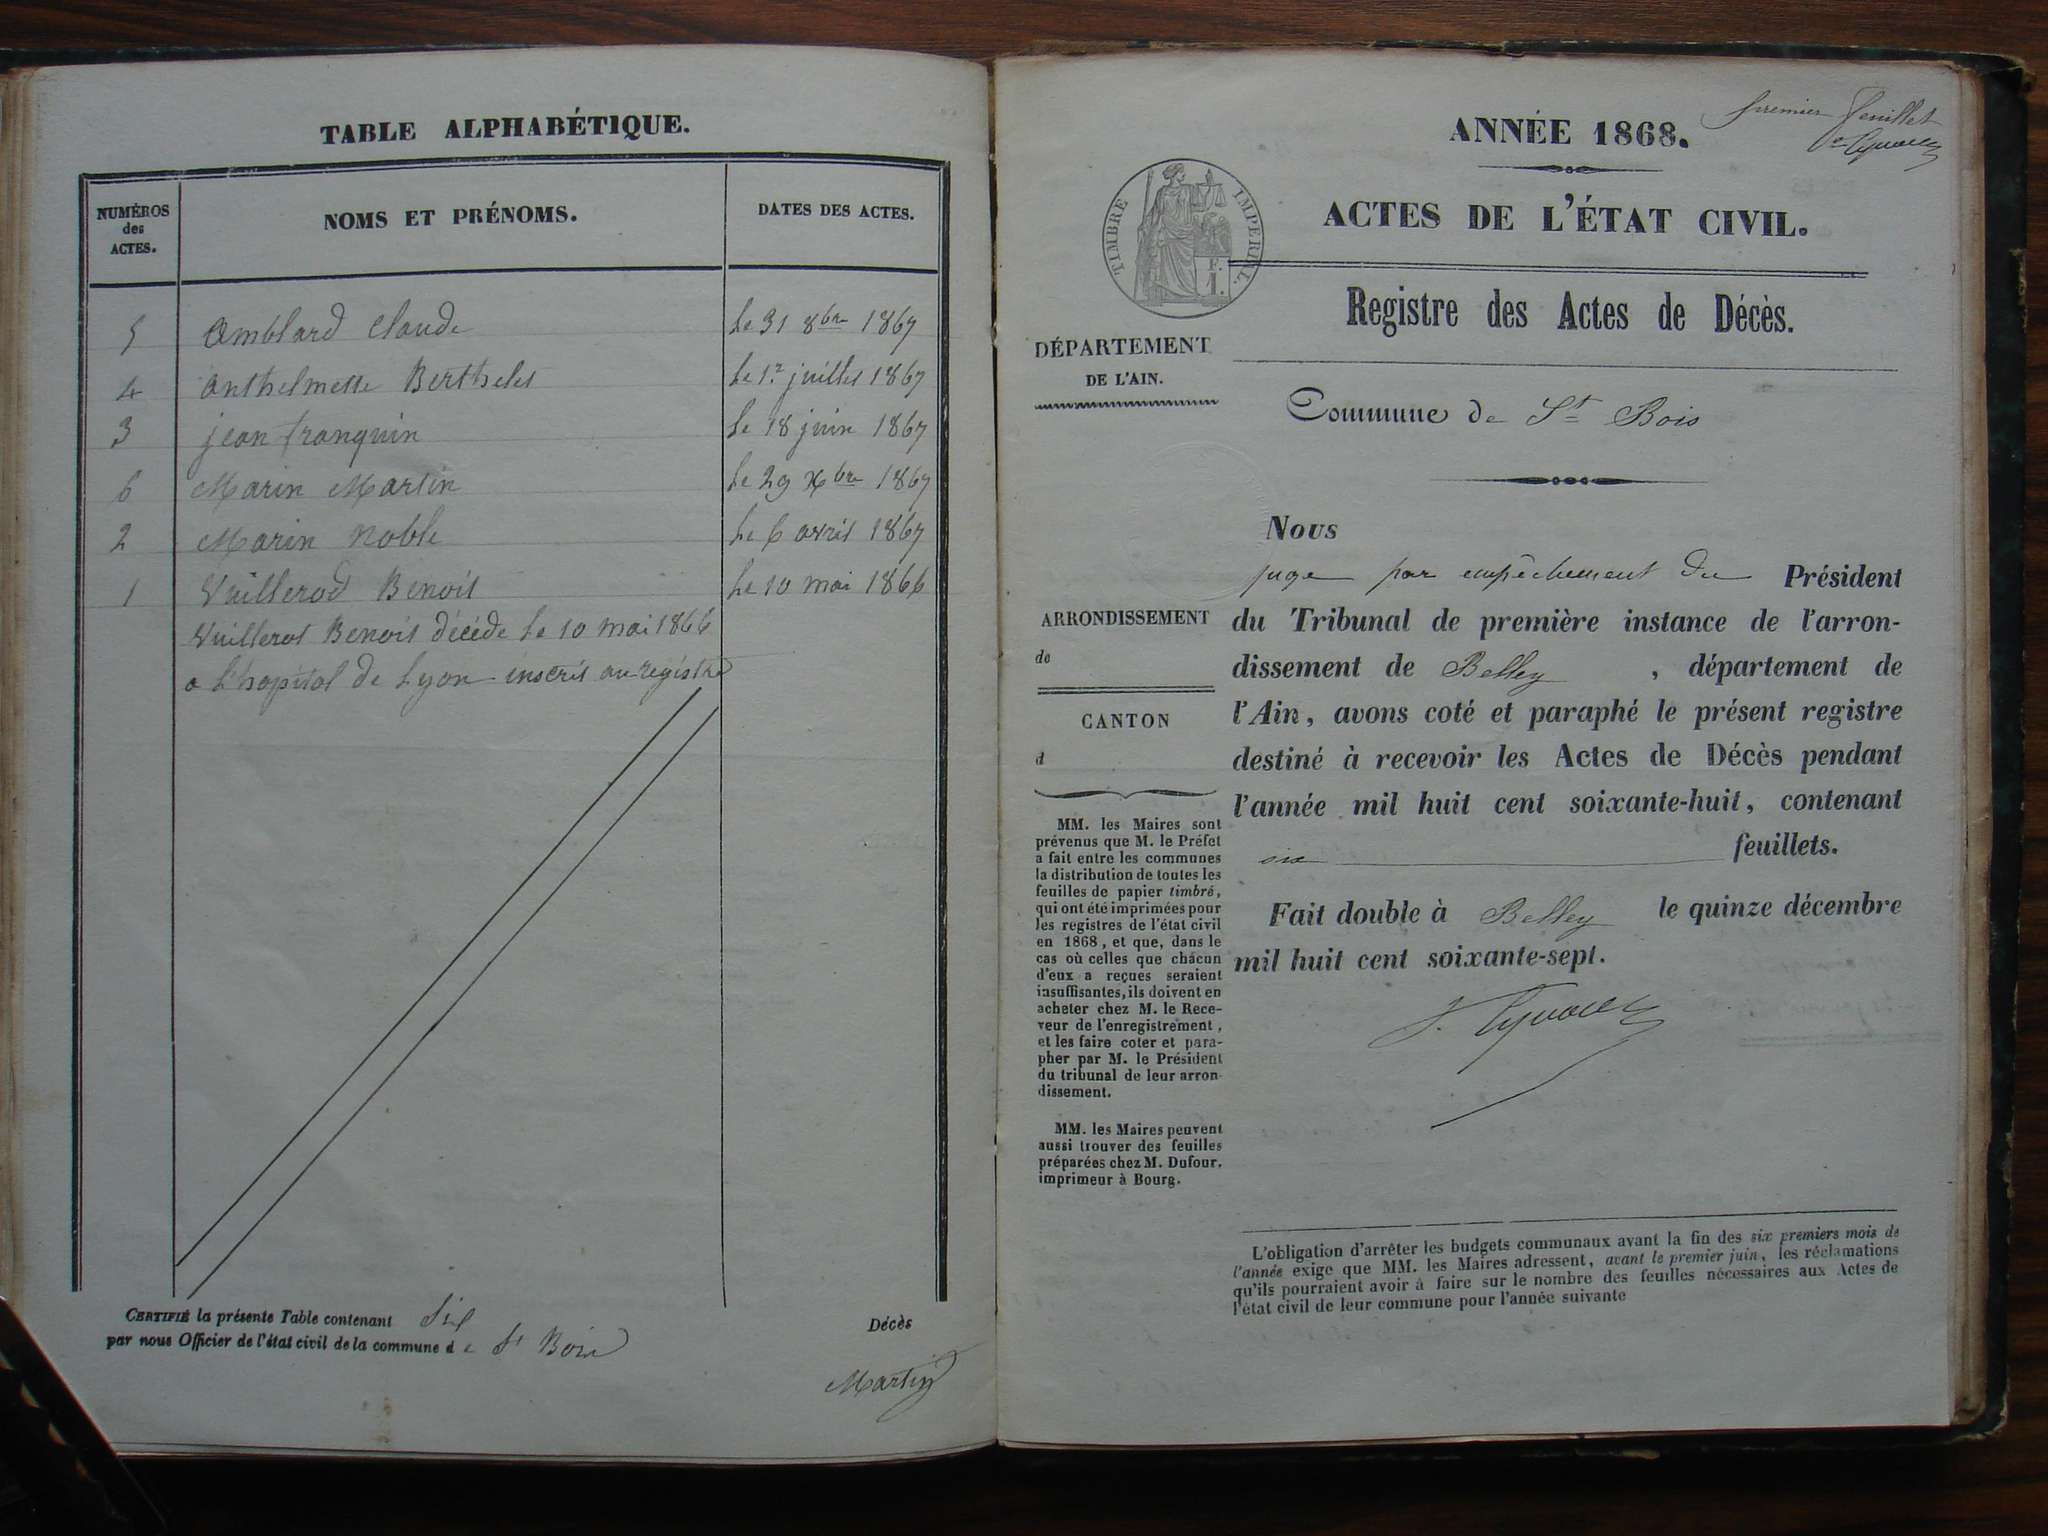 TABLE ALPHABÉTIQUE.
NUMÉROS des ACTES.
NOMS ET PRÉNOMS.
DATES DES ACTES.
5 Amblard Claude Le 31 8bre 1867
4 Anthelmette Berthelet Le 1er juillet 1867
3 jean franquin Le 18 juin 1867
6 Marin Martin Le 29 Xbre 1867
2 Marin Noble Le 6 avril 1867
1 Vuillerod Benoit Le 10 mai 1866
Vuillerot Benoit décéde Le 10 mai 1866
a l'hopital de Lyon inscrit au registre
CERTIFIÉ la présente Table contenant Six Décès
par nous Officier de l'état civil de la commune de St Bois
Martin
premier feuillet
ANNÉE 1868.
TIMBRE IMPERIAL.
F.
1.
ACTES DE L'ÉTAT CIVIL.
Registre des Actes de Décès.
DÉPARTEMENT
DE L'AIN.
Commune de St Bois
ARRONDISSEMENT
de
CANTON
d
MM. les Maires sont
prévenus que M. le Préfet
a fait entre les communes
la distribution de toutes les
feuilles de papier timbré,
qui ont été imprimées pour
les registres de l'état civil
en 1868, et que, dans le
cas où celles que chacun
d'eux a reçues seraient
insuffisantes, ils doivent en
acheter chez M. le Rece-
veur de l'enregistrement,
et les faire coter et para-
pher par M. le Président
du tribunal de leur arron-
dissement.
MM. les Maires peuvent
aussi trouver des feuilles
préparées chez M. Dufour,
imprimeur à Bourg.
Nous
juge par empêchement du Président
du Tribunal de première instance de l'arron-
dissement de Belley, département de
l'Ain, avons coté et paraphé le présent registre
destiné à recevoir les Actes de Décès pendant
l'année mil huit cent soixante-huit, contenant
six feuillets.
Fait double à Belley le quinze décembre
mil huit cent soixante-sept.
L'obligation d'arrêter les budgets communaux avant la fin des six premiers mois de
l'année exige que MM. les Maires adressent, avant le premier juin, les réclamations
qu'ils pourraient avoir à faire sur le nombre des feuilles nécessaires aux Actes de
l'état civil de leur commune pour l'année suivante